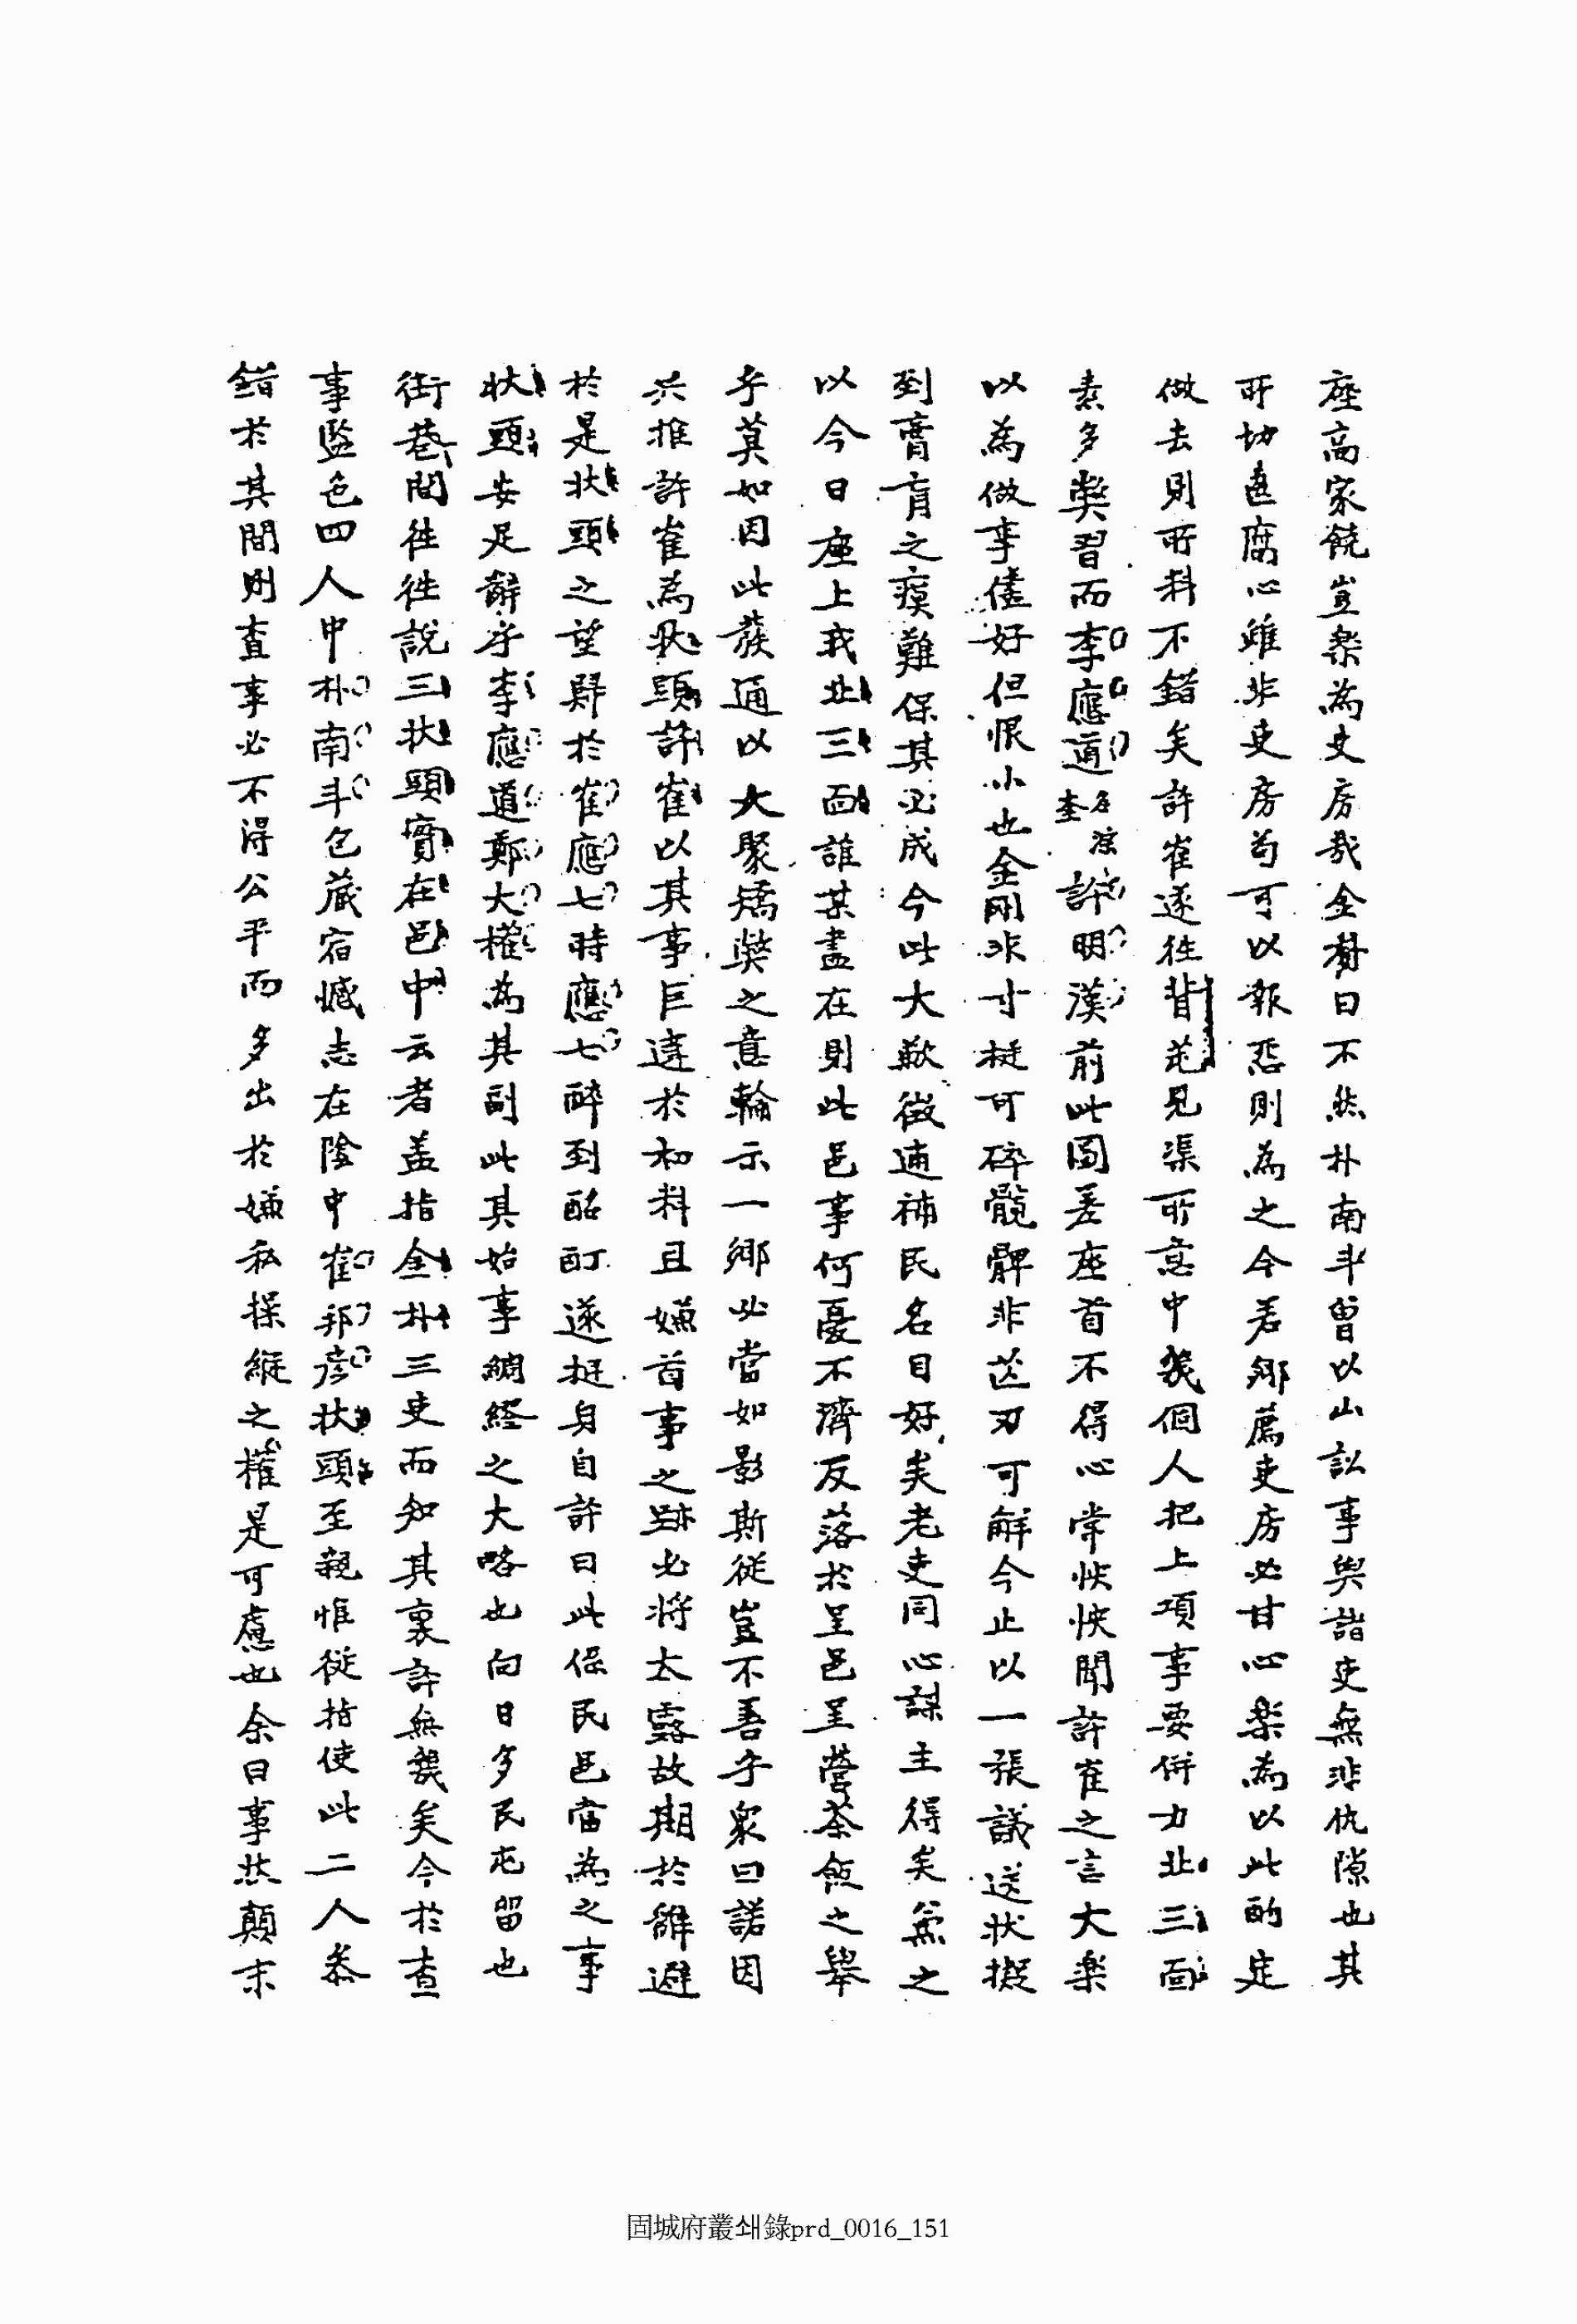 座高家饒豈樂為吏房哉全替曰不然朴南斗曾以山訟事與諸吏無非仇隙也其
所切齒腐心雖非吏房苟可以報惡則為之今若鄉薦吏房必甘心樂為以此酌定
做去則所料不錯矣許崔遂往背花見渠所意中幾個人把上項事要併力北三面
素多獘習而李應道名添李許明漢前此圖差座首不得心常怏怏聞許崔之言大樂
以為做事儘好但恨小也金剛氷寸梃可碎髖髀非芒刃可解今止以一張議送狀擬
到膏肓之瘼難保其必成今此大歉徵逋補民名目好矣老吏同心謀主得矣兼之
以今日座上我北三面誰某盡在則此邑事何憂不濟反落於呈邑呈營茶飯之舉
乎莫如因此發通以大聚矯獘之意輪示一鄉必當如影斯從豈不善乎衆曰諾因
共推許崔為狀頭許崔以其事巨違於初料且嫌首事之跡必將太露故期於辭避
於是狀頭之望歸於崔應七時應七醉到酩酊遂挺身自許曰此係民邑當為之事
狀頭安足辭乎李應道鄭大權為其副此其始事綢經之大略也向日多民屯留也
街巷間往往說三狀頭實在邑中云者盖指金朴三吏而知其裏許無幾矣今於查
事監色四人中朴南斗包藏宿憾志在陰中崔邦彦狀頭至親惟從指使此二人叅
錯於其間則查事必不得公平而多出於嫌私操縱之權是可慮也余曰事然顛末
固城府叢쇄錄prd_0016_151